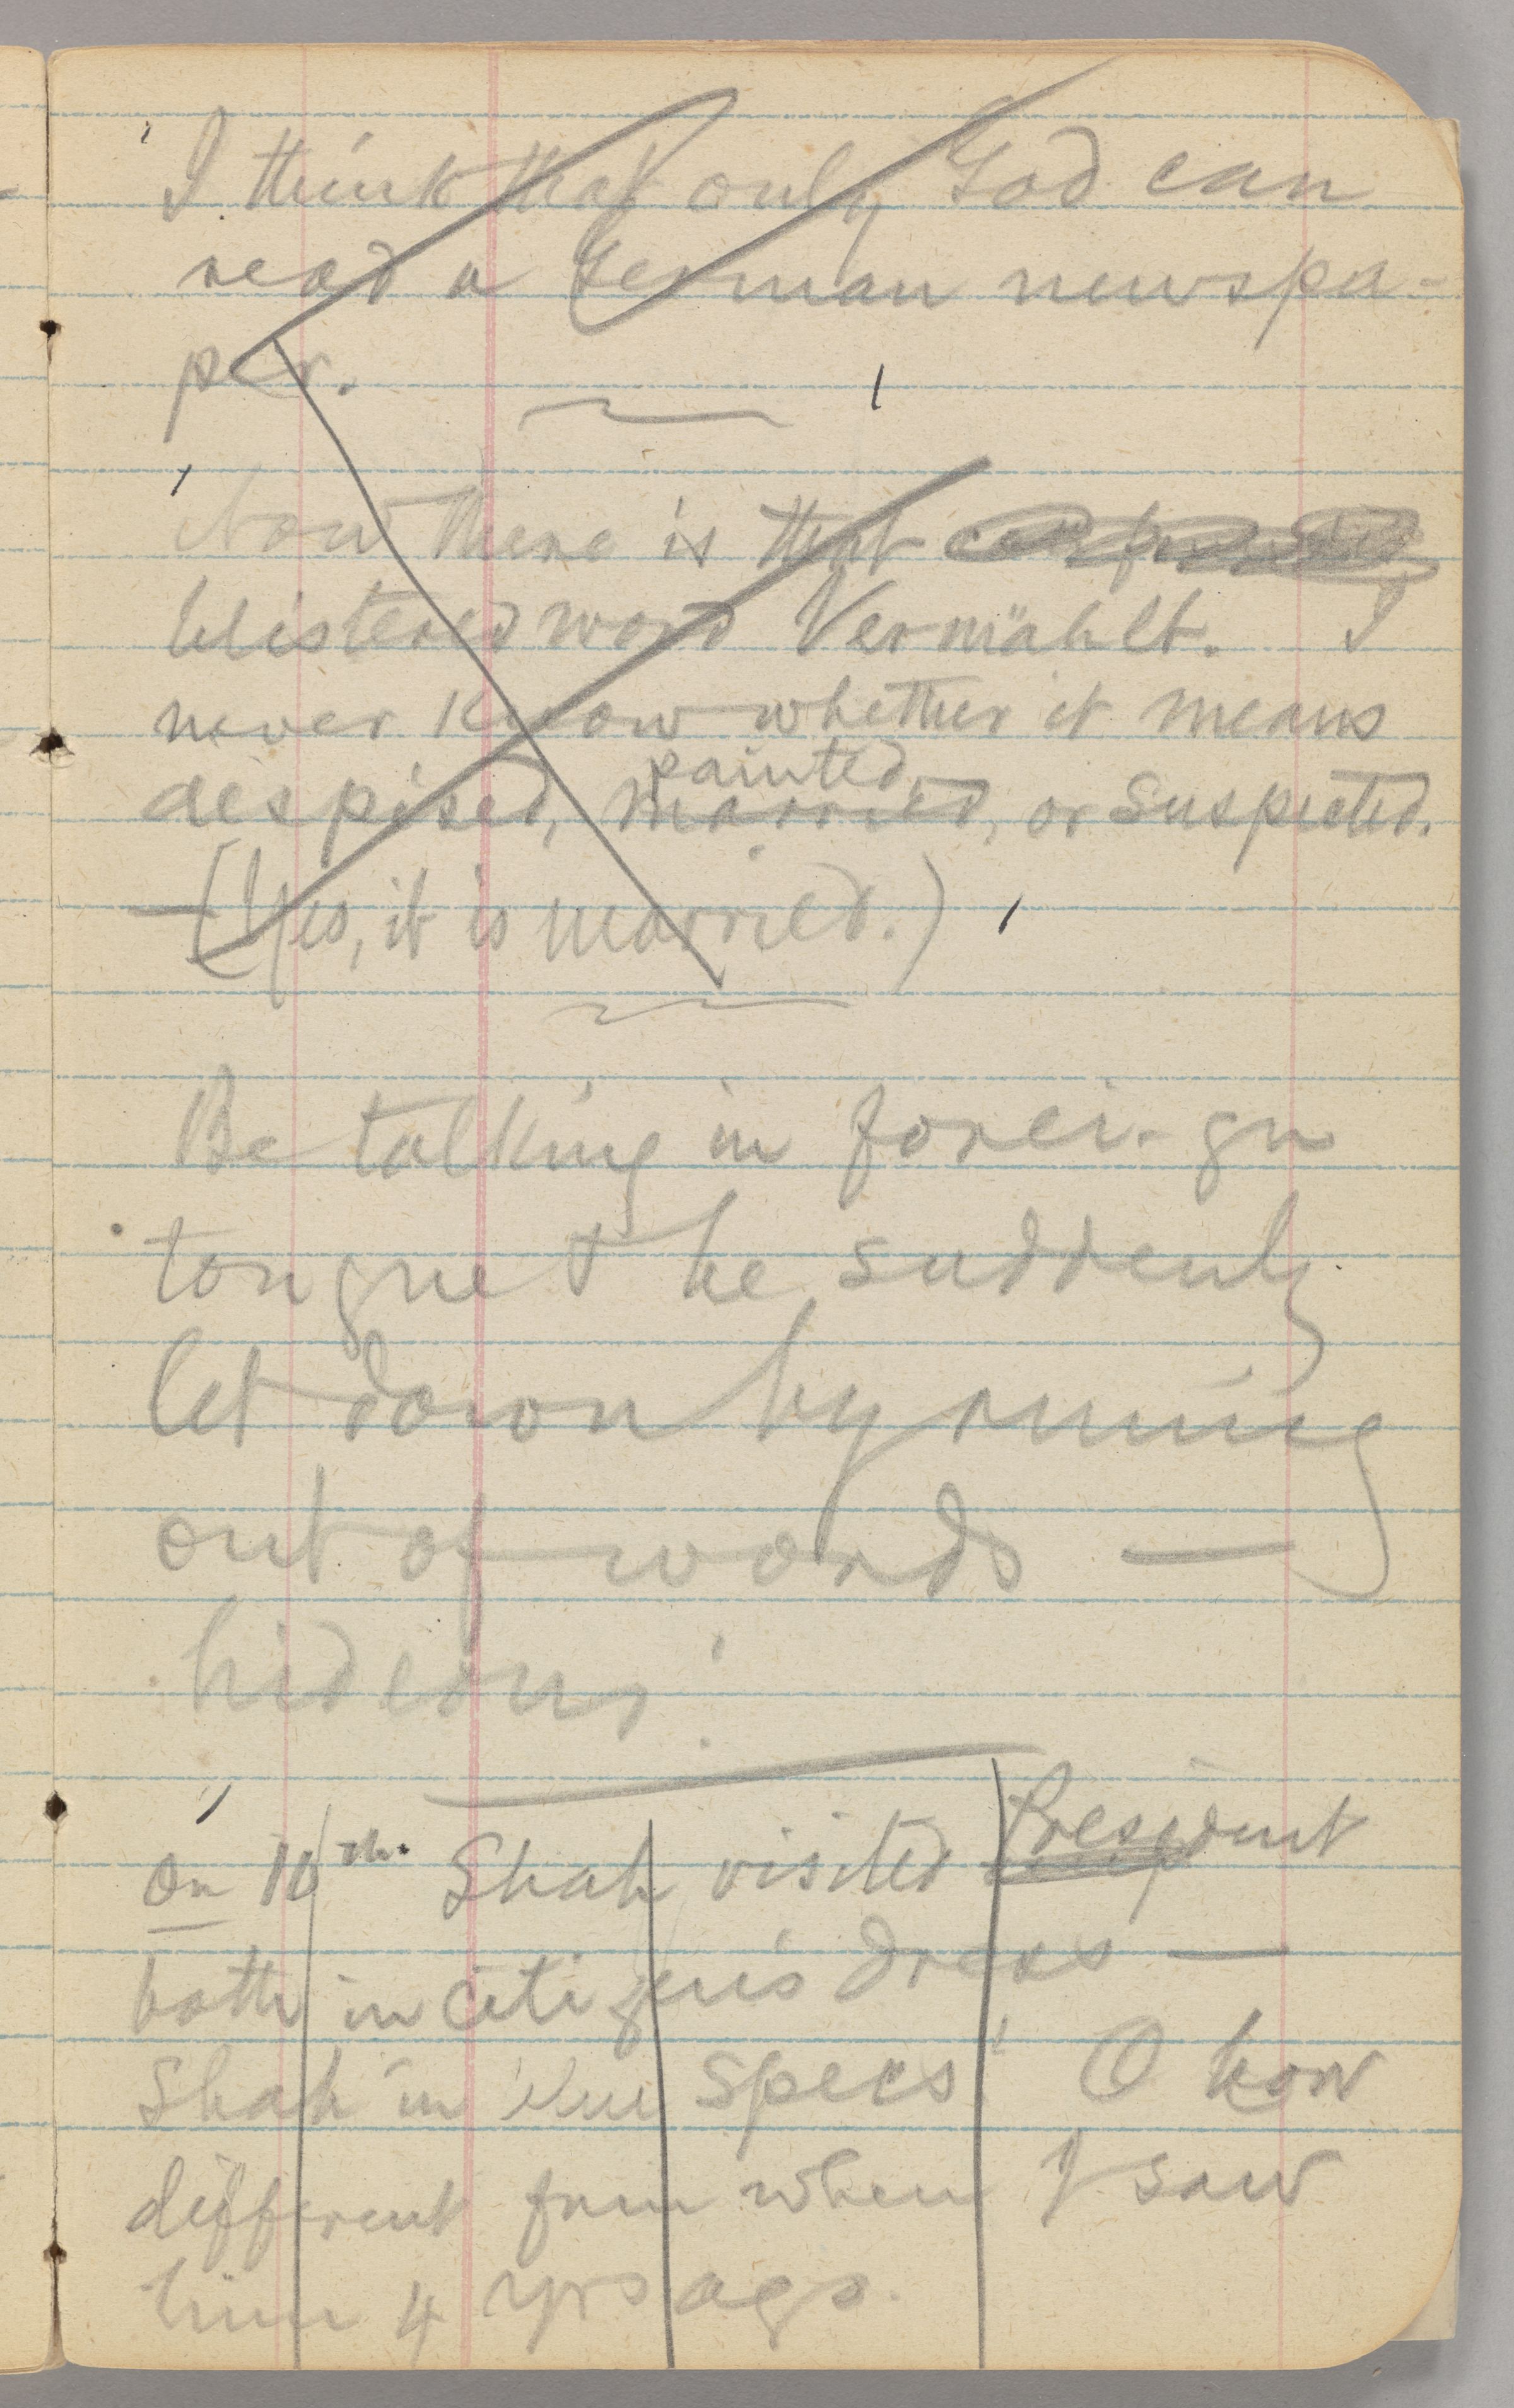 I think that only God can
read a German newspa-
per.
Now there is that
blistered word Vermählt. I
never know whether it means
despised, married, painted, or suspected.
—(Yes, it is married.)
Be talking in forei-gn
tongue & be suddenly
let down by runing
out of words —
hideous!
On 10th. Shah visited President
both in citizen's dress —
Shah in specs! O how
different from when I saw
him 4 yrs ago.